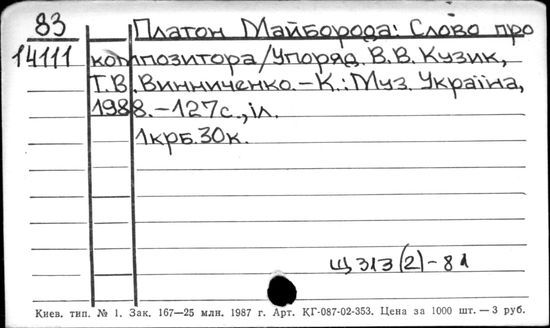 83
14111
Платон Майборода: Слово про
композитора/Упоряд. В.В. Кузик,
Т.В. Винниченко.-К.: Муз. Україна,
1988.-127с., іл.
1крб.30к.
Щ313(2)-81
Киев. тип. № 1. Зак. 167—25 млн. 1987 г. Арт. КГ-087-02-353. Цена за 1000 шт. — 3 руб.